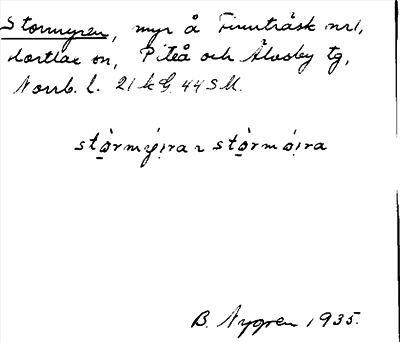 Stormyren, myr å Finnträsk nr 1,
Hortlax sn, Piteå och Älvsby tg,
Norrb. l. 21 k G. 44 SM.
stò̠rmýi̯ra ~ stò̠rmói̯ra
B. Nygren 1935.